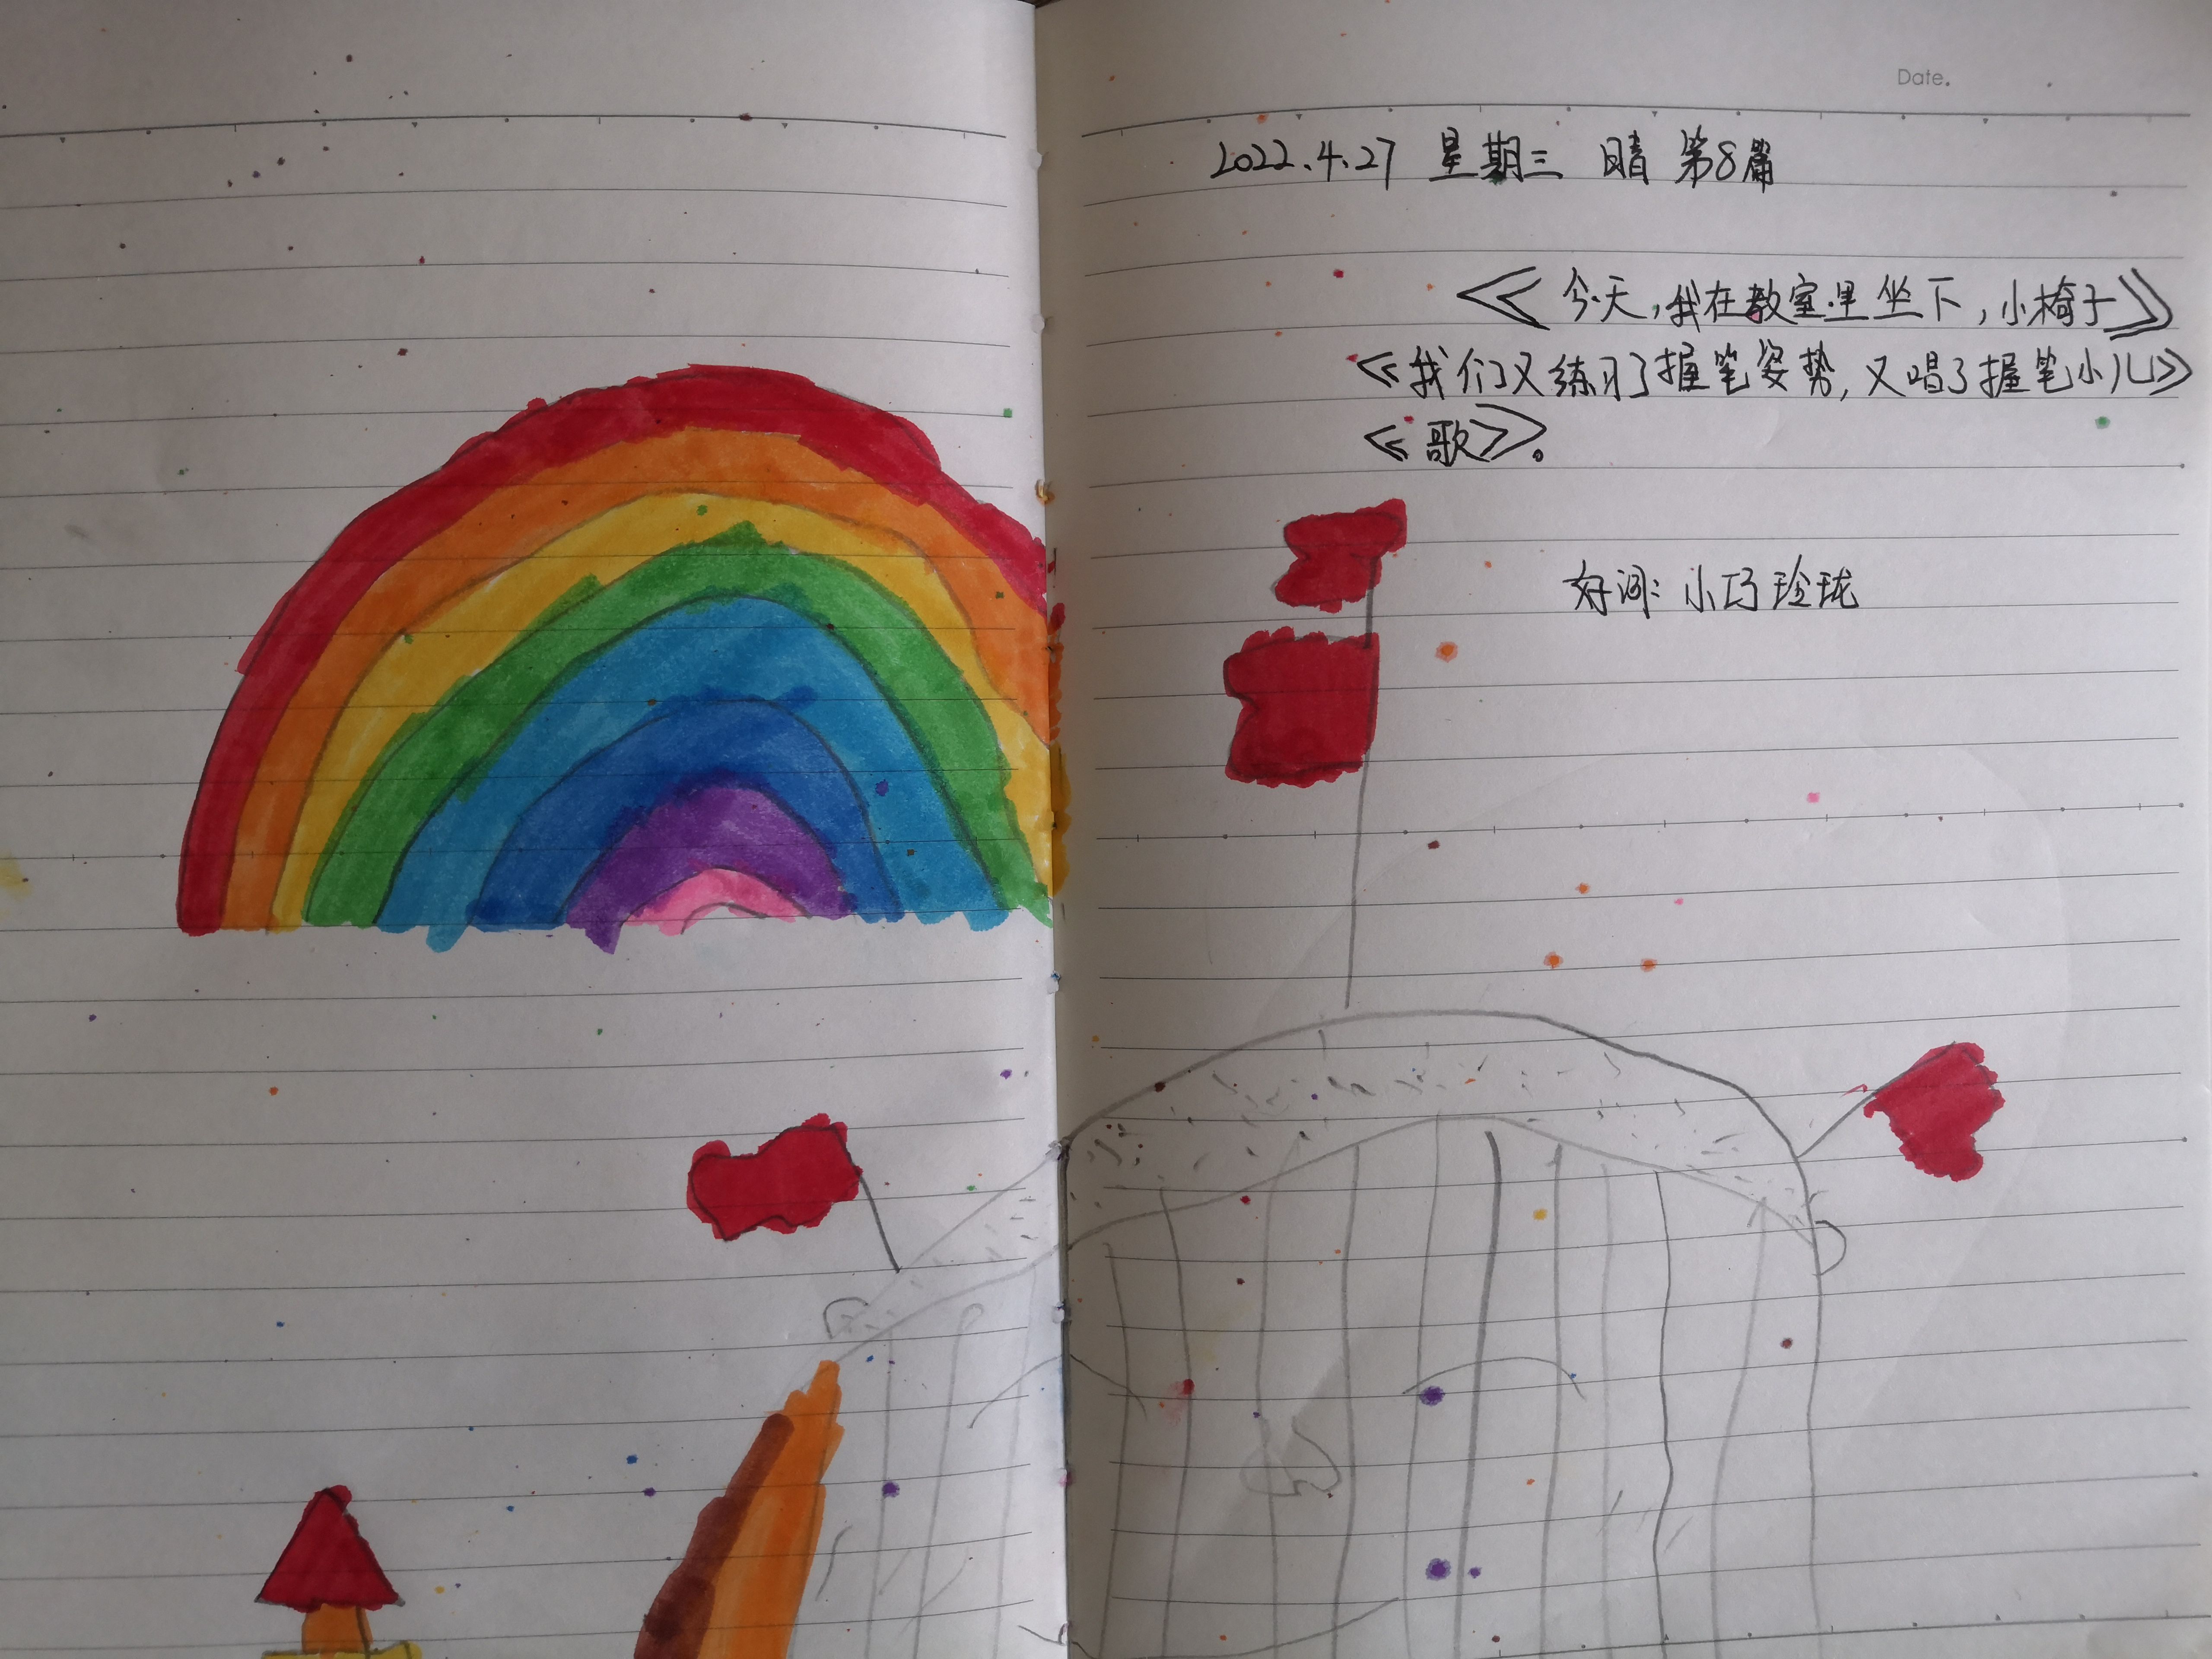 Date.
2022.4.27 星期三 晴 第8篇
《今天,我在教室里坐下,小椅子》
《我们又练习了握笔姿势,又唱了握笔小儿》
《歌》。
好词:小巧玲珑